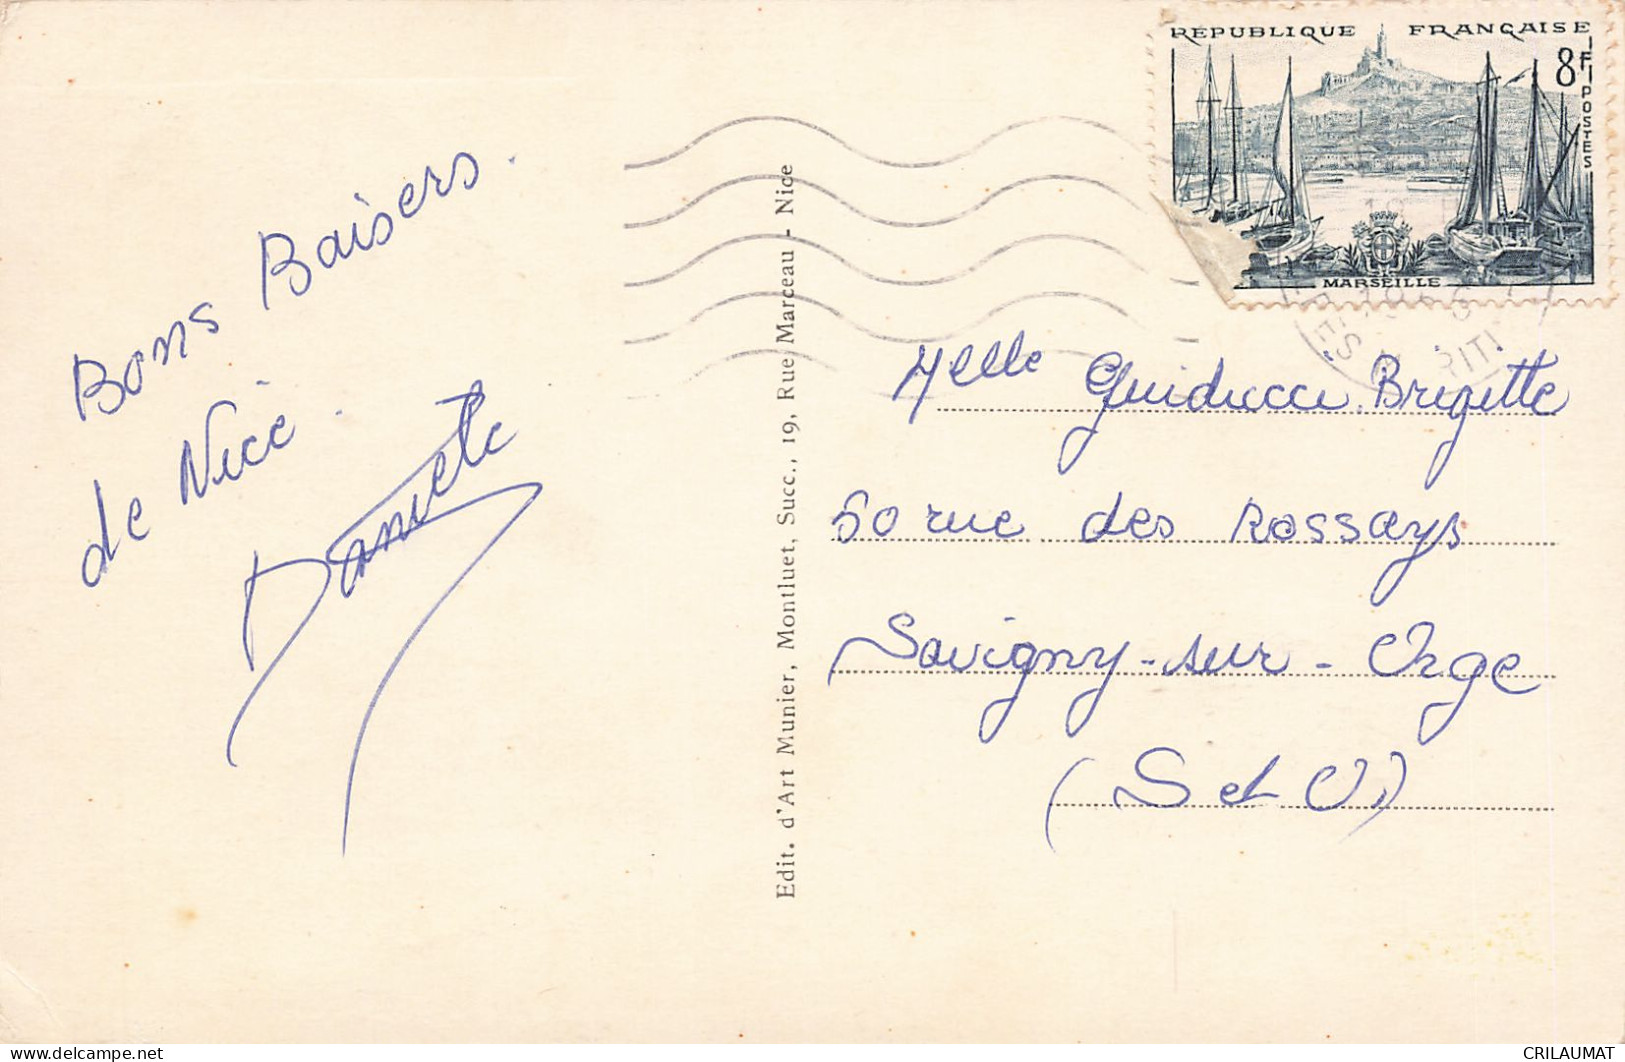 Bons Baisers.
de Nice.
Danièle
Edit. d'Art Munier, Montluet, Succ., 19, Rue Marceau - Nice
REPUBLIQUE FRANÇAISE
8F
POSTES
MARSEILLE
Melle Guiducci Brigitte
60 rue des Rossays
Savigny-sur-Orge
(S et O)
delcampe.net
CRILAUMAT